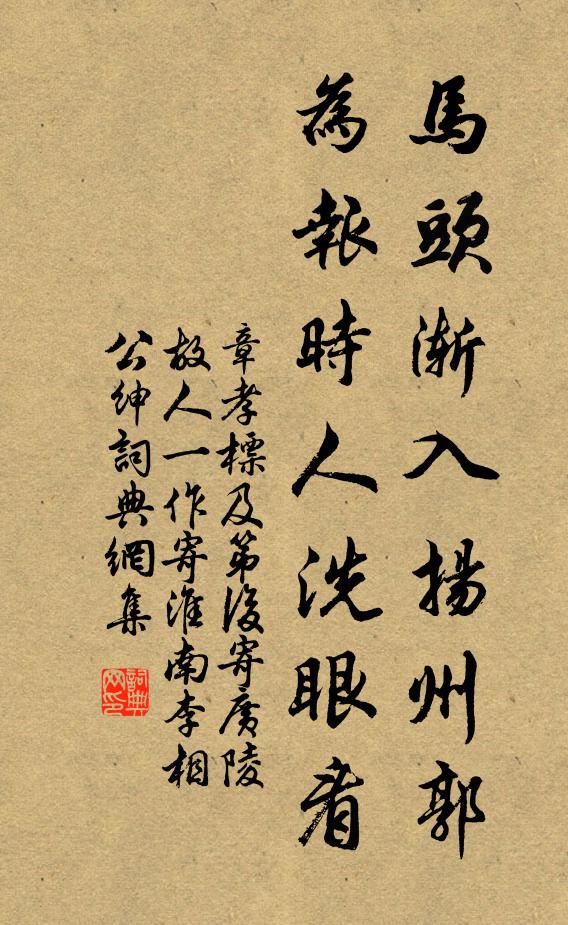 馬頭漸入揚州郭
為報時人洗眼看
章孝標及第後寄廣陵
故人一作寄淮南李相
公紳詞典網集
詞典网印